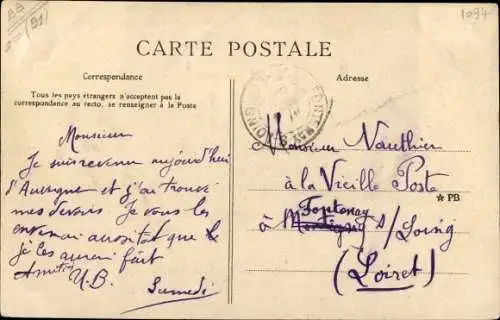 1094
CARTE POSTALE
Correspondance
Tous les pays étrangers n'acceptent pas la
correspondance au recto, se renseigner à la Poste
Monsieur
Je suis revenu aujourd'hui
d'Auvergne et j'ai trouvé
mes devoirs. Je vous les
enverrai aussitôt que
je les aurai fait
Amitiés U.B.
Samedi
Adresse
Monsieur Vauthier
à la Vieille Poste
★ PB
Fontenay
à Montigny s/Loing
(Loiret)